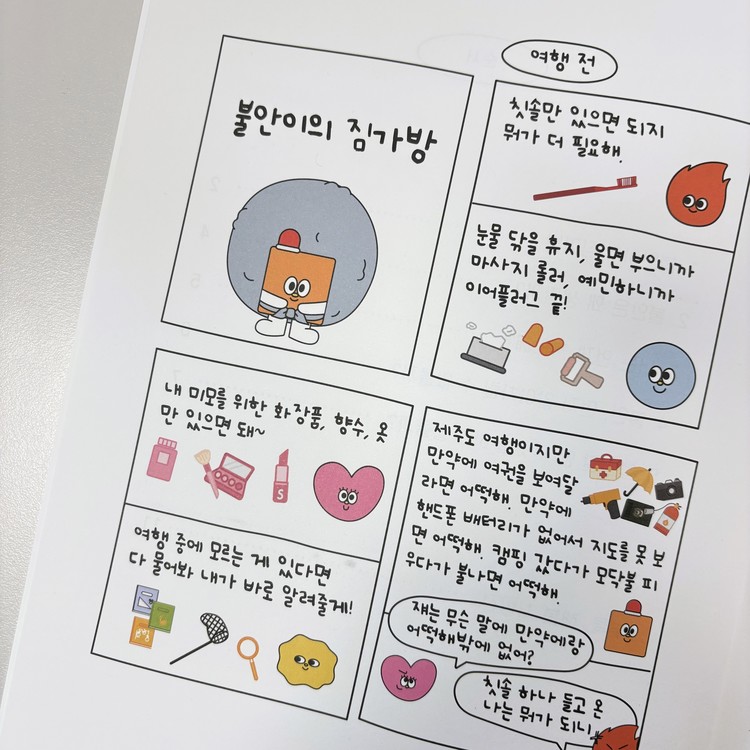 여행 전
불안이의 짐가방
칫솔만 있으면 되지
뭐가 더 필요해.
눈물 닦을 휴지, 울면 부으니까
마사지 롤러, 예민하니까
이어플러그 끝!
내 미모를 위한 화장품, 향수, 옷
만 있으면 돼~
S
여행 중에 모르는 게 있다면
다 물어봐 내가 바로 알려줄게!
제주도 여행이지만
만약에 여권을 보여달
라면 어떡해. 만약에
핸드폰 배터리가 없어서 지도를 못 보
면 어떡해. 캠핑 갔다가 모닥불 피
우다가 불나면 어떡해.
쟤는 무슨 말에 만약에랑
어떡해밖에 없어?
칫솔 하나 들고 온
나는 뭐가 되니